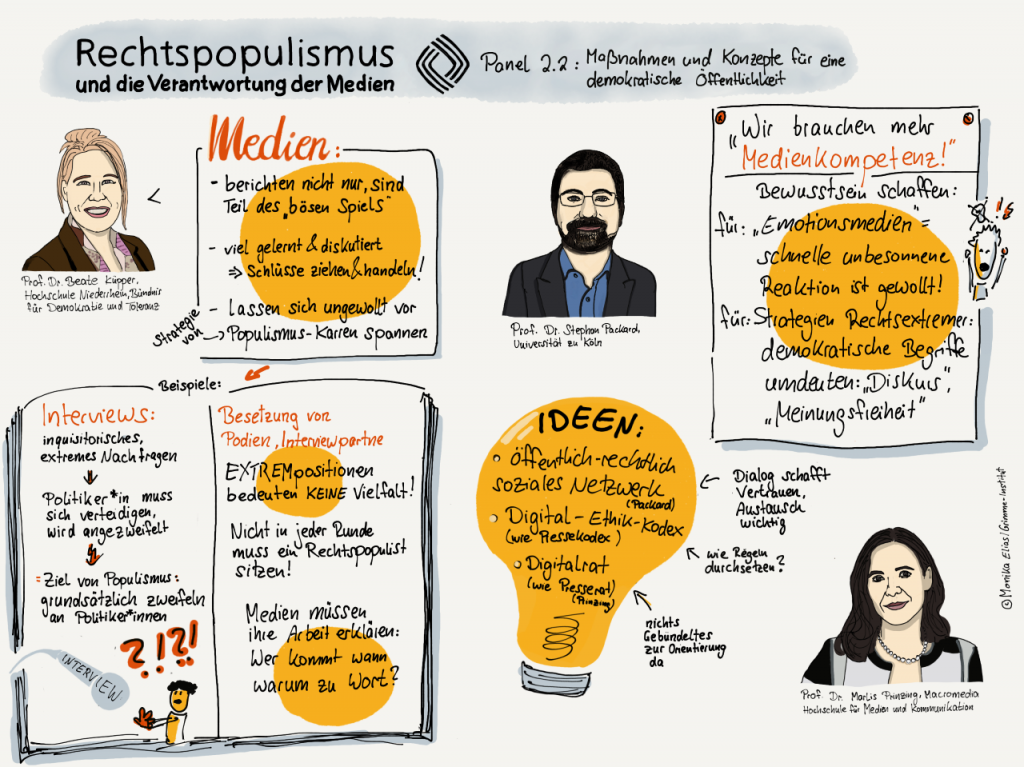 Rechtspopulismus
und die Verantwortung der Medien
Panel 2.2: Maßnahmen und Konzepte für eine
demokratische Öffentlichkeit
Prof. Dr. Beate Küpper,
Hochschule Niederrhein, Bündnis
für Demokratie und Toleranz
Medien:
- berichten nicht nur, sind
Teil des „bösen Spiels"
- viel gelernt & diskutiert
⇒ Schlüsse ziehen & handeln!
- Lassen sich ungewollt vor
Populismus-Karren spannen
Strategie
von
Prof. Dr. Stephan Packard
Universität zu Köln
„Wir brauchen mehr
Medienkompetenz!"
Bewusstsein schaffen:
für: „Emotionsmedien" =
schnelle unbesonnene
Reaktion ist gewollt!
für: Strategien Rechtsextremer:
demokratische Begriffe
umdeuten: „Diskurs",
„Meinungsfreiheit"
!!
Beispiele:
Interviews:
inquisitorisches,
extremes Nachfragen
Politiker*in muss
sich verteidigen,
wird angezweifelt
= Ziel von Populismus:
grundsätzlich zweifeln
an Politiker*innen
?!?!
INTERVIEW
Besetzung von
Podien, Interviewpartne
EXTREMpositionen
bedeuten KEINE Vielfalt!
Nicht in jeder Runde
muss ein Rechtspopulist
sitzen!
Medien müssen
ihre Arbeit erklären:
Wer kommt wann
warum zu Wort?
IDEEN:
• öffentlich-rechtlich
soziales Netzwerk
(Packard)
• Digital-Ethik-Kodex
(wie Pressekodex)
• Digitalrat
(wie Presserat)
(Prinzing)
Dialog schafft
Vertrauen,
Austausch
wichtig
wie Regeln
durchsetzen?
nichts
Gebündeltes
zur Orientierung
da
Prof. Dr. Marlis Prinzing, Macromedia
Hochschule für Medien und Kommunikation
© Monika Elias/Grimme-Institut